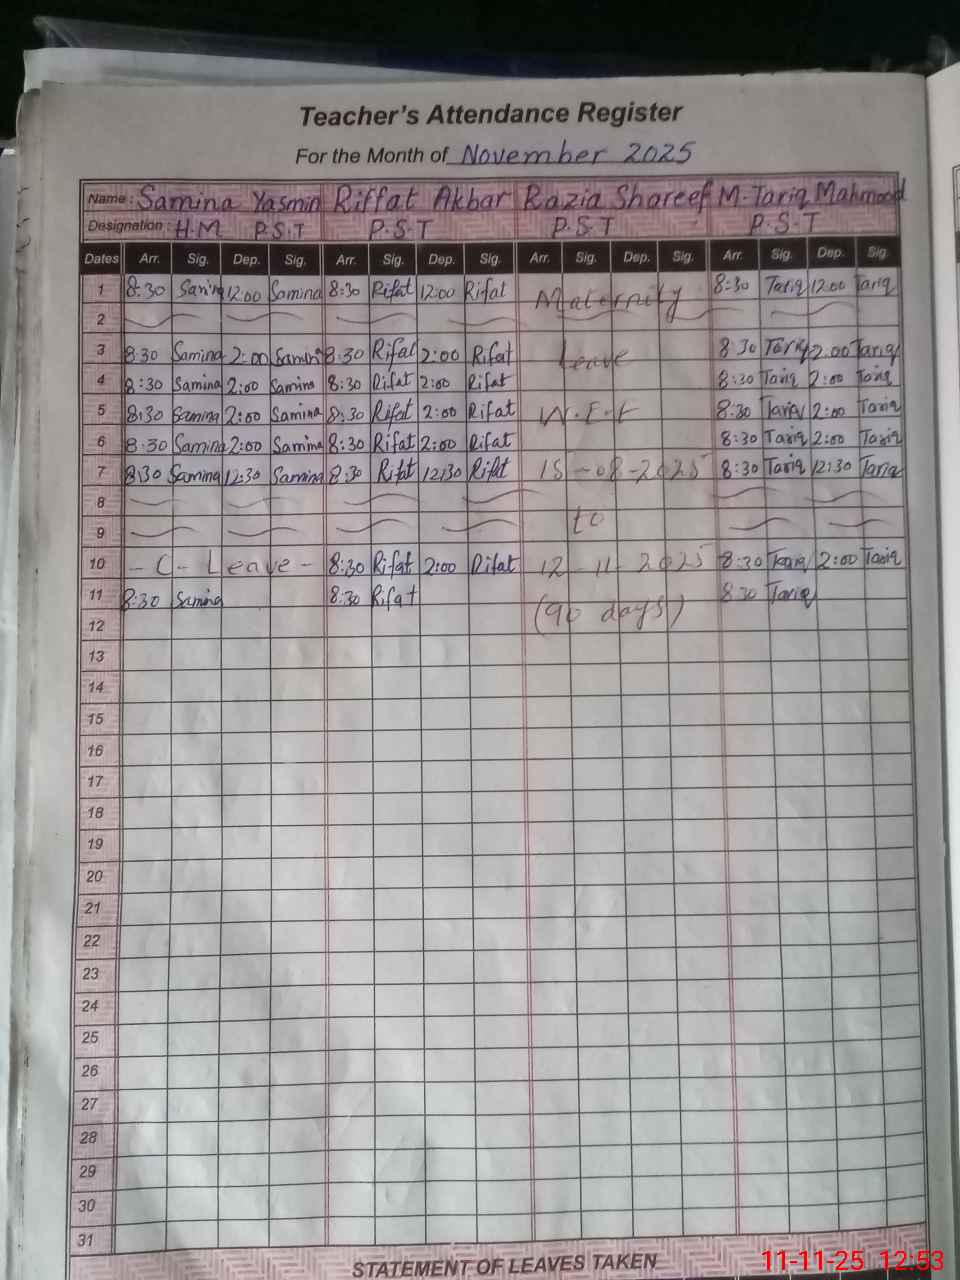 Teacher's Attendance Register
For the Month of November 2025
Name : Samina Yasmin Riffat Akbar Razia Shareef M. Tariq Mahmood
Designation : H.M P.S.T P.S.T P.S.T P.S.T
Dates Arr. Sig. Dep. Sig. Arr. Sig. Dep. Sig. Arr. Sig. Dep. Sig. Arr. Sig. Dep. Sig.
1 8:30 Samina 12:00 Samina 8:30 Rifat 12:00 Rifat Maternity 8:30 Tariq 12:00 Tariq
2
3 8:30 Samina 2:00 Samina 8:30 Rifat 2:00 Rifat Leave 8:30 Tariq 2:00 Tariq
4 8:30 Samina 2:00 Samina 8:30 Rifat 2:00 Rifat 8:30 Tariq 2:00 Tariq
5 8:30 Samina 2:00 Samina 8:30 Rifat 2:00 Rifat W.E.F 8:30 Tariq 2:00 Tariq
6 8:30 Samina 2:00 Samina 8:30 Rifat 2:00 Rifat 8:30 Tariq 2:00 Tariq
7 8:30 Samina 12:30 Samina 8:30 Rifat 12:30 Rifat 15-08-2025 8:30 Tariq 12:30 Tariq
8
9 to
10 - C - Leave - 8:30 Rifat 2:00 Rifat 12-11-2025 8:30 Tariq 2:00 Tariq
11 8:30 Samina 8:30 Rifat (90 days) 8:30 Tariq
12
13
14
15
16
17
18
19
20
21
22
23
24
25
26
27
28
29
30
31
STATEMENT OF LEAVES TAKEN
11-11-25 12:53